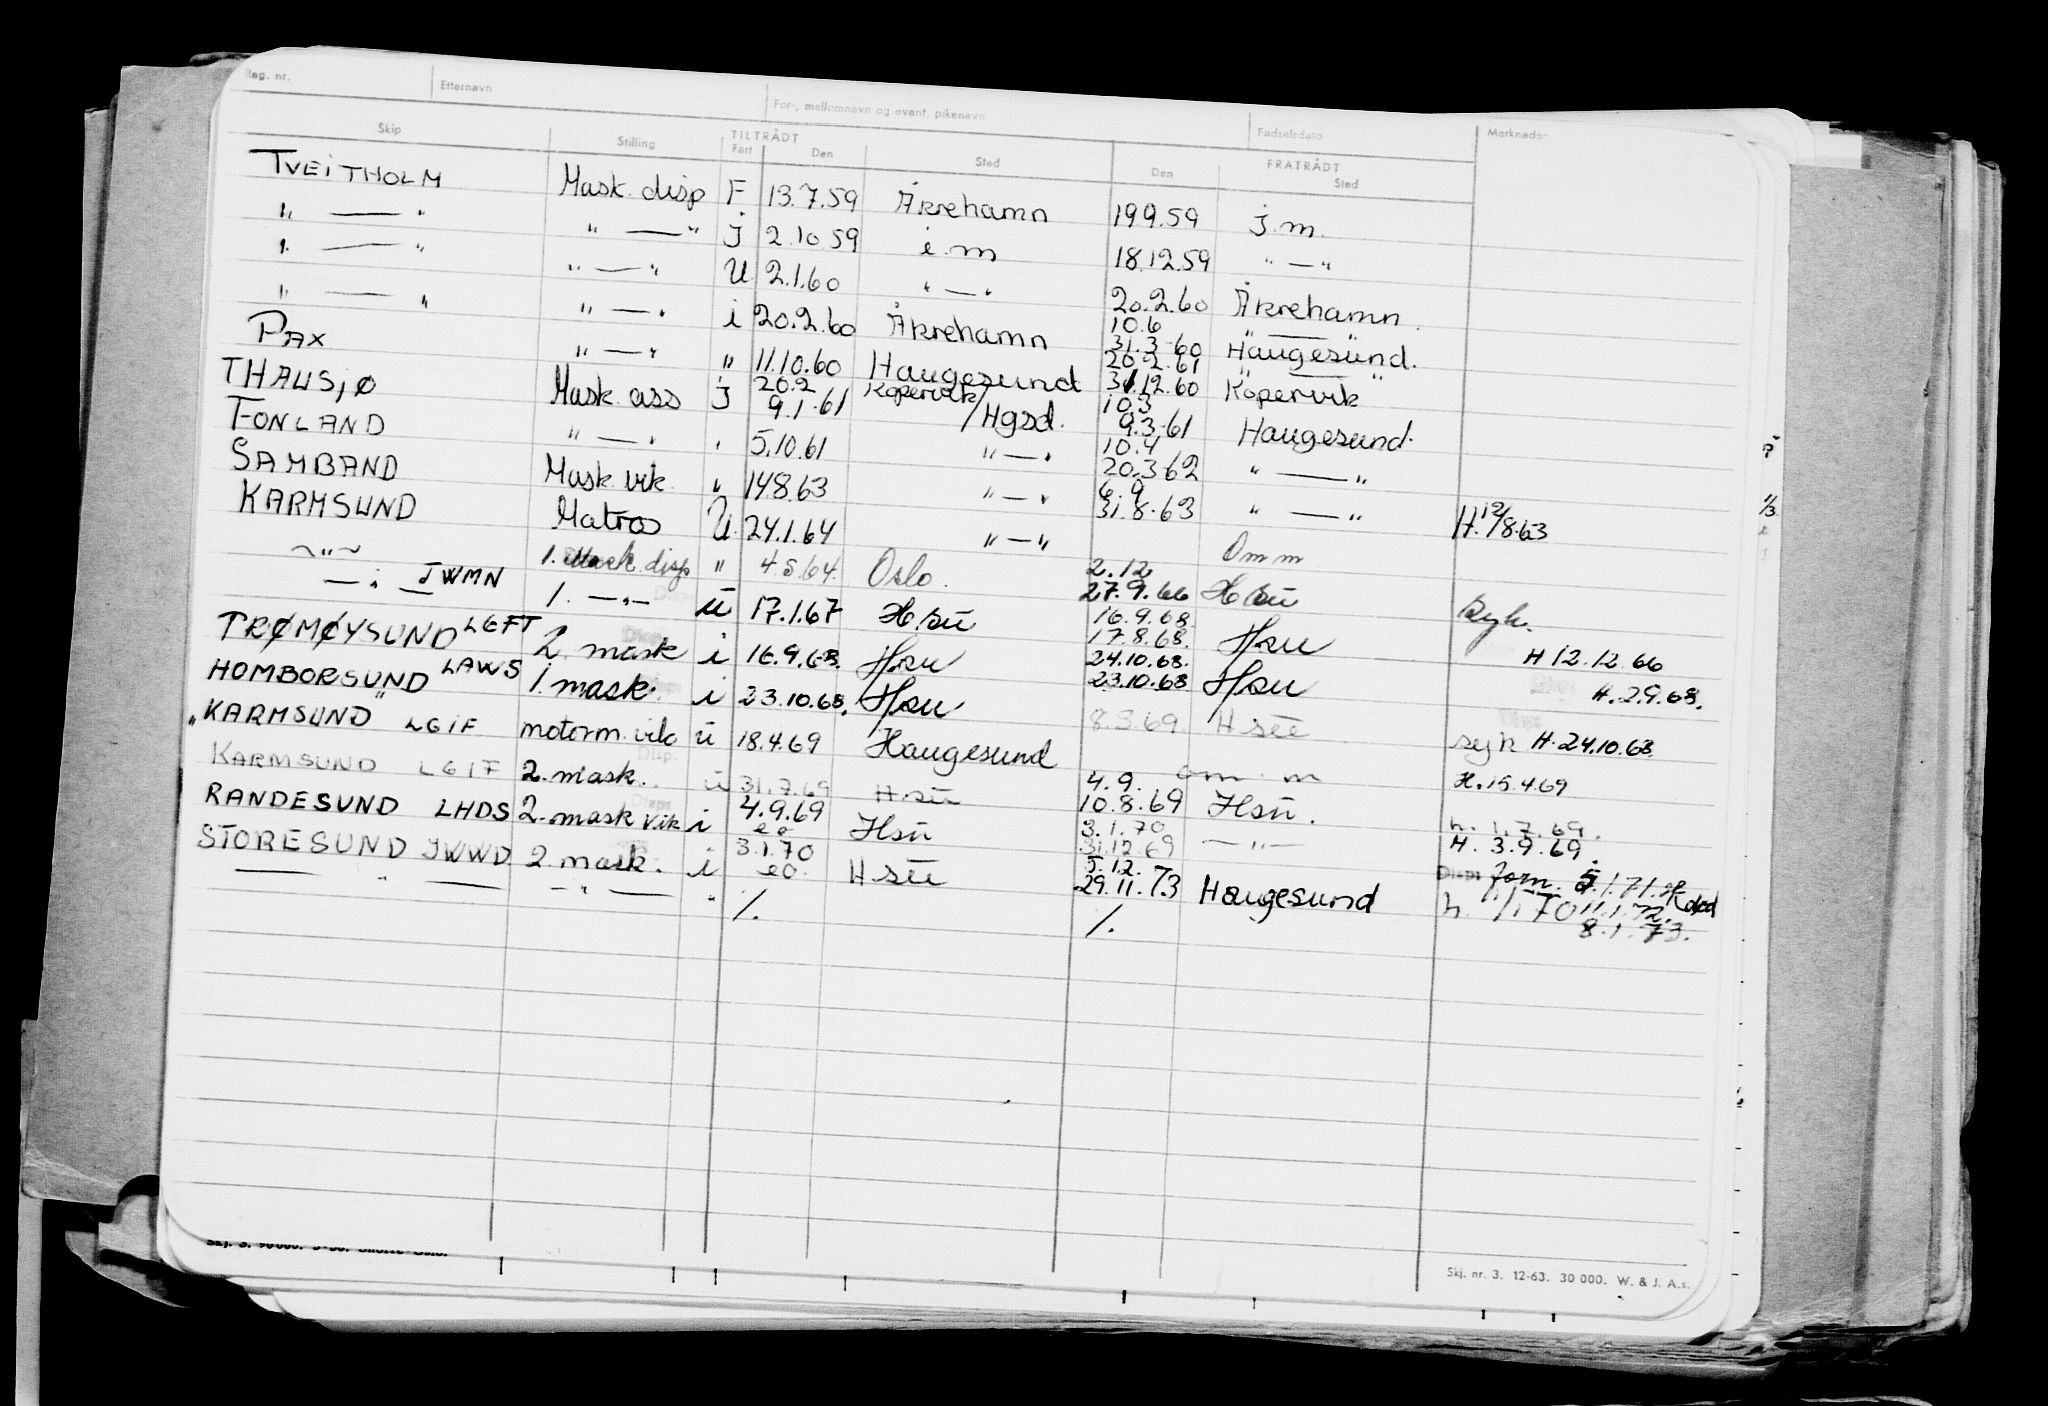 Reg. nr. Etternavn For-, mellomnavn og event. pikenavn Fødselsdato Merknader
Skip Stilling TILTRÅDT FRATRÅDT
Fart Den Sted Den Sted
TVEITHOLM Mask. disp F 13.7.59 Åkrehamn 19.9.59 j.m.
" — " " — " j 2.10.59 i.m 18.12.59 " — "
" — " " — " U 2.1.60 " — " 20.2.60 Åkrehamn.
" — " " — " i 20.2.60 Åkrehamn 10.6 " — "
31.3.60 Haugesund.
PAX " — " " 11.10.60 Haugesund 20.2.61 " — "
31.12.60 Kopervik
THAUSJØ Mask. ass j 20.2 Kopervik 10.3
9.1.61 /Hgsd. 9.3.61 Haugesund.
FONLAND " — " " 5.10.61 " — " 10.4
20.3.62 " — "
SAMBAND Mask. vik. " 14.8.63 " — " 6.9
31.8.63 " — " H. 12/8.63
KARMSUND Matros U. 24.1.64 " — " Om m
~ " ~ 1. Mask. disp " 4.5.64. Oslo. 2.12
27.9.66 H su syk.
— " — JWMN 1. — " — ü 17.1.67 H.su 16.9.68.
17.8.68. Hsu H 12.12.66
TRØMØYSUND LGFT 2. mask i 16.9.68. Hsu 24.10.68.
23.10.68 Hsu H. 2.9.68.
HOMBORSUND LAWS 1. mask. i 23.10.68. Hsu 8.3.69. H su syk H. 24.10.68.
"KARMSUND" LGIF motorm. vik ü 18.4.69 Haugesund om. m H. 15.4.69
KARMSUND LGIF 2. mask. ü 31.7.69 H.su 4.9.
10.8.69 Hsu. h. 1.7.69.
RANDESUND LHDS 2. mask vik i 4.9.69 Hsu 3.1.70
eo 31.12.69 — " — H. 3.9.69.
STORESUND JWWD 2 mask. i 3.1.70 H su 5.12.
eo. 29.11.73 Haugesund Disp. forn. 5.1.71.
— " — — " — " /. /. h. 1/1.70 11.1.72.
8.1.73.
Skj. nr. 3. 12-63. 30 000. W. & J. A.s.